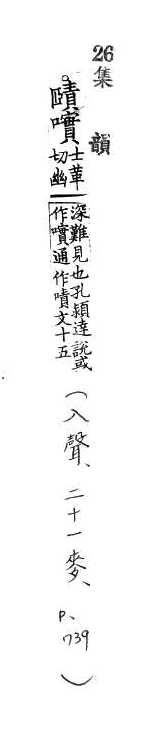 26 集韻
賾
士革
切幽
深難見也孔穎達說或
作通作嘖文十五
(入聲、二十一麥、p、739)